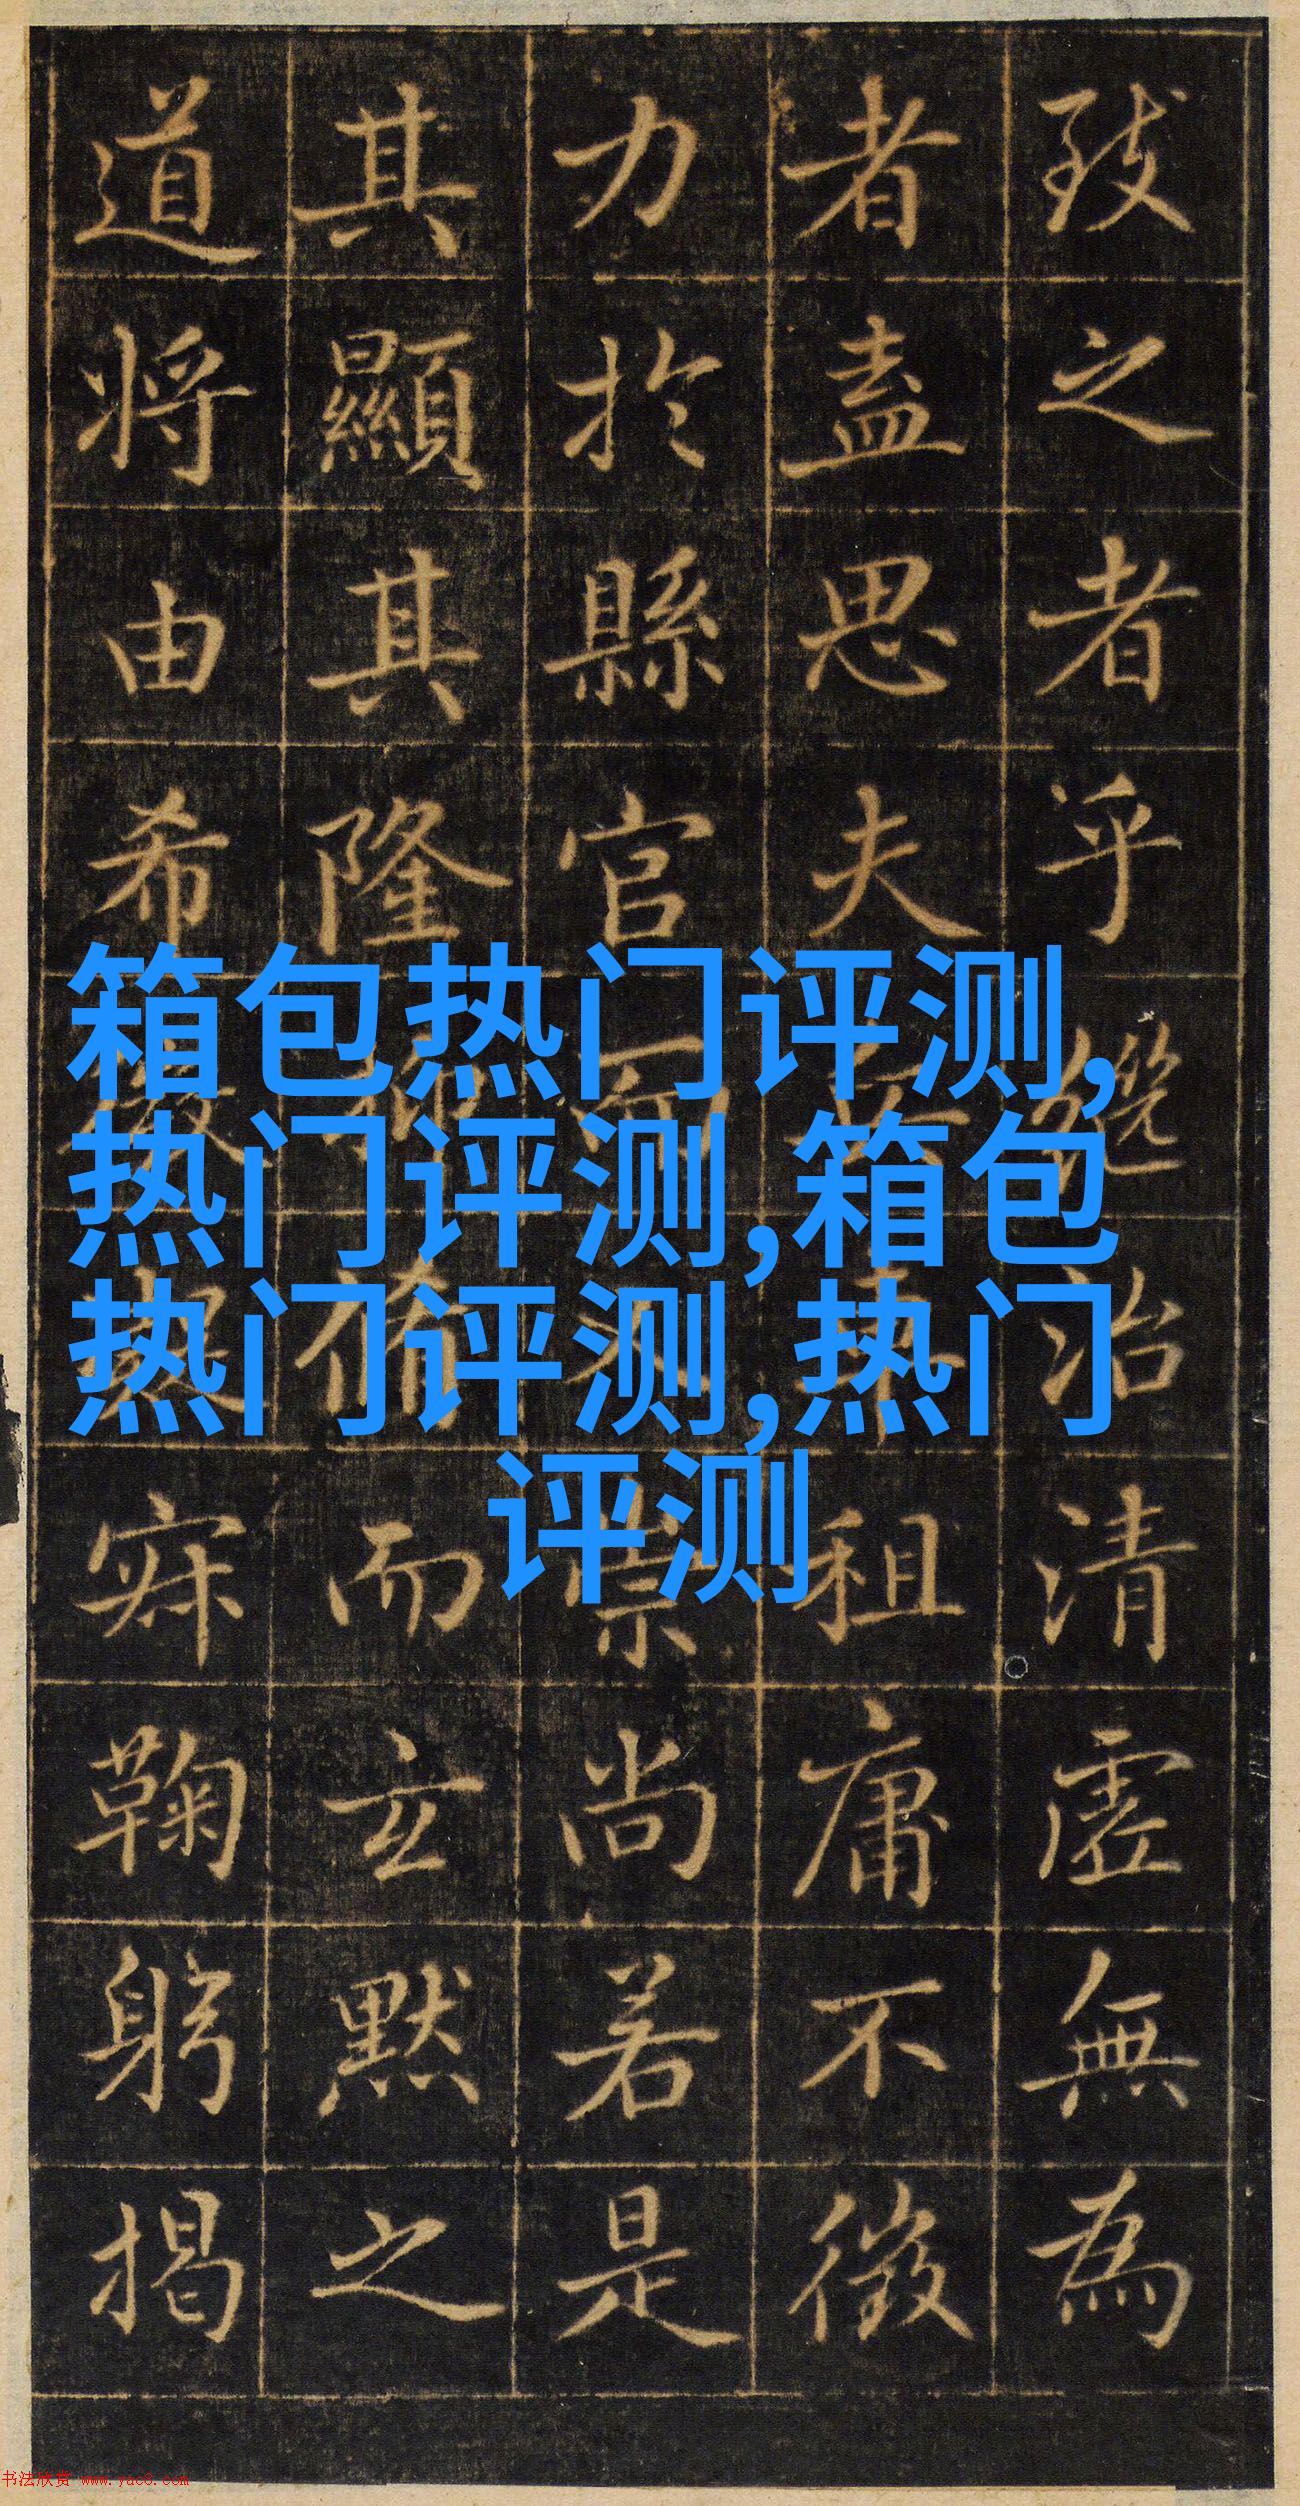 致之者乎纔治清虛無為
者盡思夫租庸不徵
力於縣官崇尚若是
其顯其隆而玄默之
道將由希寂鞠躬揭
箱包热门评测,
热门评测,箱包
热门评测,热门
评测
书法欣赏 www.yac8.com